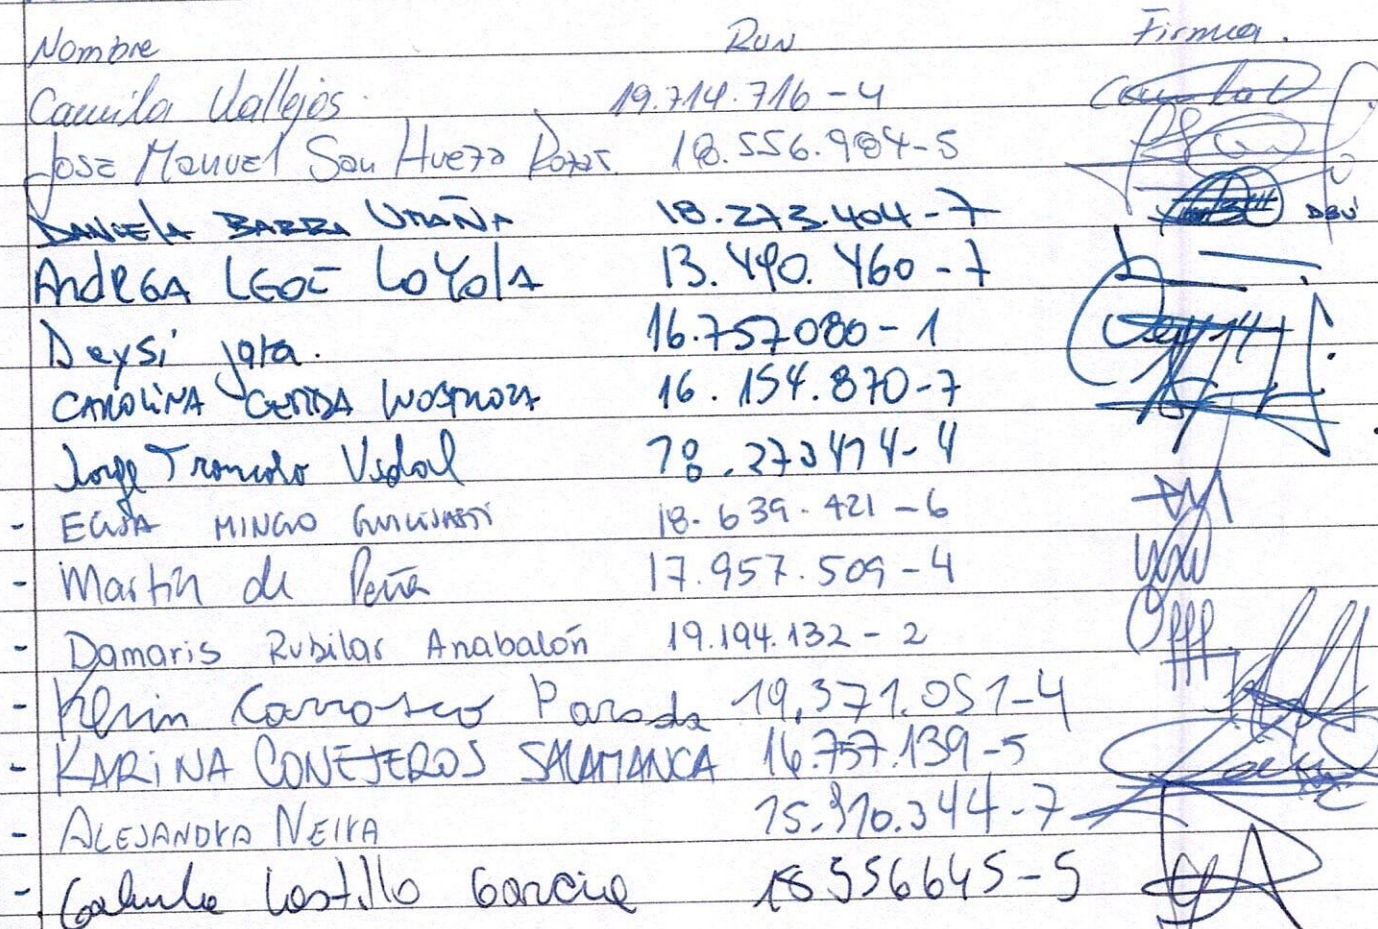 Nombre RUN Firma.
Camila Vallejos. 19.714.716-4
Jose Manuel San Hueza Rozas. 18.556.984-5
DANIELA BARRA UMAÑA 18.273.404-7 DBU
Andrea LEOE LOYOLA 13.490.460-7
Deysi Jara. 16.757080-1
CAROLINA CERDA INOSTROZA 16.154.870-7
Jorge Troncoso Vidal 18.273414-4
- ELISA MINGO 18.639.421-6
- Martín de Peña 17.957.509-4
- Damaris Rubilar Anabalón 19.194.132-2
- Kevin Carrasco Parada 19.371.051-4
- KARINA CONEJEROS SALAMANCA 16.757.139-5
- ALEJANDRA NEIRA 15.910.344-7
- Gabriela Castillo Garcia 18556645-5